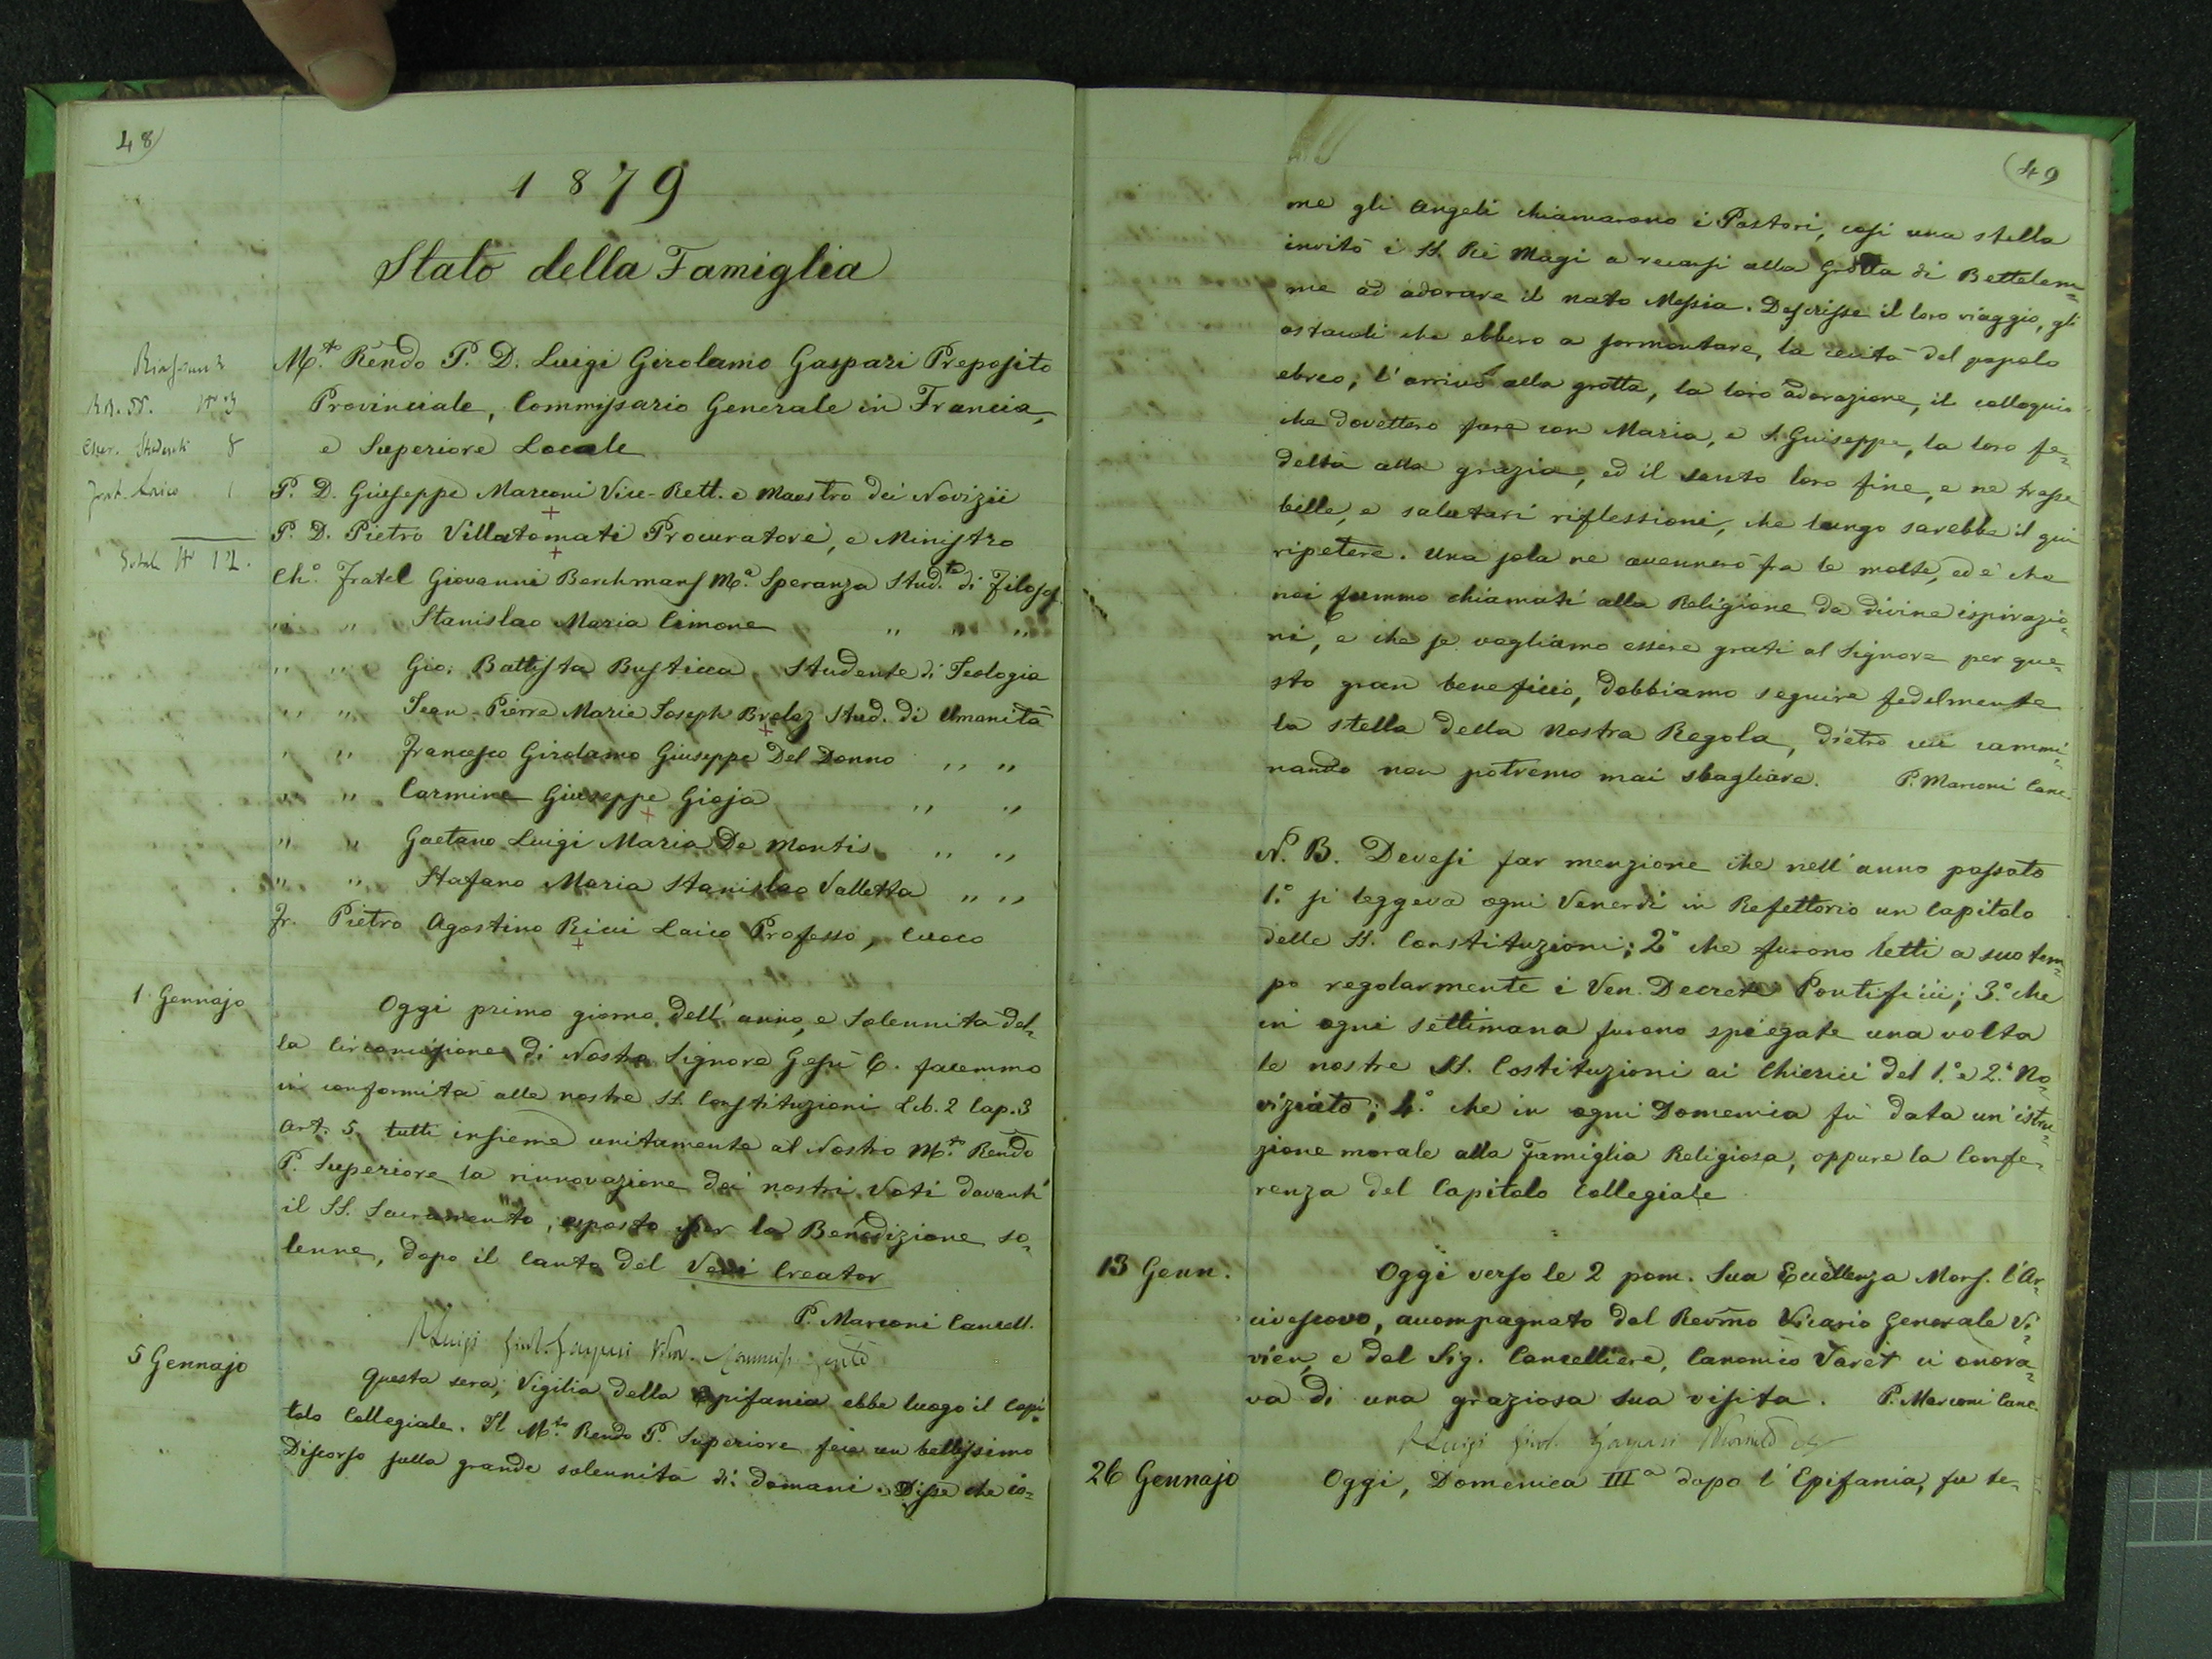 48
1879
Stato della Famiglia
Riassunto
RR. PP. N° 3
Cher. Studenti 8
Frat. Laico 1
Total N° 12.
M.to Rendo P. D. Luigi Girolamo Gaspari Preposito
Provinciale, Commissario Generale in Francia,
e Superiore Locale
P. D. Giuseppe Marconi Vice-Rett. e Maestro dei Novizii
P. D. Pietro Villatomati Procuratore, e Ministro
Ch.° Fratel Giovanni Berchmans M.a Speranza Stud.te di Filosof.
" " Stanislao Maria Cimone " " "
" " Gio: Battista Busticca Studente di Teologia
" " Jean-Pierre Marie Joseph Brelaz Stud. di Umanità
" " Francesco Girolamo Giuseppe Del Donno " "
" " Carmine Giuseppe Gioja " "
" " Gaetano Luigi Maria De Montis " "
" " Stafano Maria Stanislao Valletta " "
Fr. Pietro Agostino Ricci Laico Professo, Cuoco
1 Gennajo
Oggi primo giorno dell'anno, e Solennità del=
la Circoncisione di Nostro Signore Gesù C. facemmo
in conformità alle nostre SS. Constituzioni Lib. 2 Cap. 3
Art. 5. tutti insieme unitamente al Nostro M.to Rendo
P. Superiore la rinnovazione dei nostri Voti davanti
il SS. Sacramento, esposto per la Benedizione so=
lenne, dopo il canto del Veni Creator
P. Marconi Cancell.
P Luigi Girol. Gaspari
5 Gennajo
Questa sera, Vigilia della Epifania ebbe luogo il Capi=
tolo Collegiale. Il M.to Rendo P. Superiore fece un bellissimo
Discorso sulla grande solennità di domani. Disse che co=
49
me gli Angeli chiamarono i Pastori, così una stella
invitò i SS. Rè Magi a recarsi alla Grotta di Bettelem=
me ad adorare il nato Messia. Descrisse il loro viaggio, gli
ostacoli che ebbero a sormontare, la cecità del popolo
ebreo, l'arrivo alla grotta, la loro adorazione, il colloquio
che dovettero fare con Maria, e S. Giuseppe, la loro fe=
deltà alla grazia, ed il santo loro fine, e ne trasse
belle, e salutari riflessioni, che lungo sarebbe il qui
ripetere. Una sola ne accennerò fra le molte, ed è che
noi fummo chiamati alla Religione da divine ispirazio=
ni, e che se vogliamo essere grati al Signore per que=
sto gran beneficio, dobbiamo seguire fedelmente
la stella della Nostra Regola, dietro cui cammi=
nando non potremo mai sbagliare. P. Marconi Canc.
N. B. Devesi far menzione che nell'anno passato
1.° si leggeva ogni Venerdì in Refettorio un Capitolo
delle SS. Constituzioni; 2° che furono letti a suo tem=
po regolarmente i Ven. Decreti Pontificii; 3.° che
in ogni settimana furono spiegate una volta
le nostre SS. Costituzioni ai Chierici del 1.° e 2.° No=
viziato; 4.° che in ogni Domenica fù data un'istru=
zione morale alla Famiglia Religiosa, oppure la Confe=
renza del Capitolo Collegiale
13 Genn.
Oggi verso le 2 pom. Sua Eccellenza Mons. l'Ar=
civescovo, accompagnato dal Revmo Vicario Generale Vi=
vien, e dal Sig. Cancelliere, Canonico Taret ci onora=
va di una graziosa sua visita. P. Marconi Canc.
P Luigi Girol. Gaspari
26 Gennajo
Oggi, Domenica III a dopo l'Epifania, fu te=